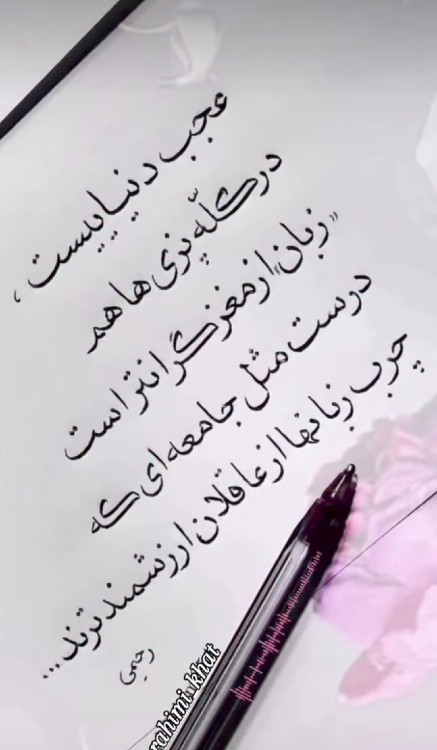 عجب دنیاییست ،
در کلّه پزی ها هم
«زبان» از مغز گرانتر است
درست مثل جامعه ای که
چرب زبانها از عاقلان ارزشمندترند...
رحیمی
rahimi_khat